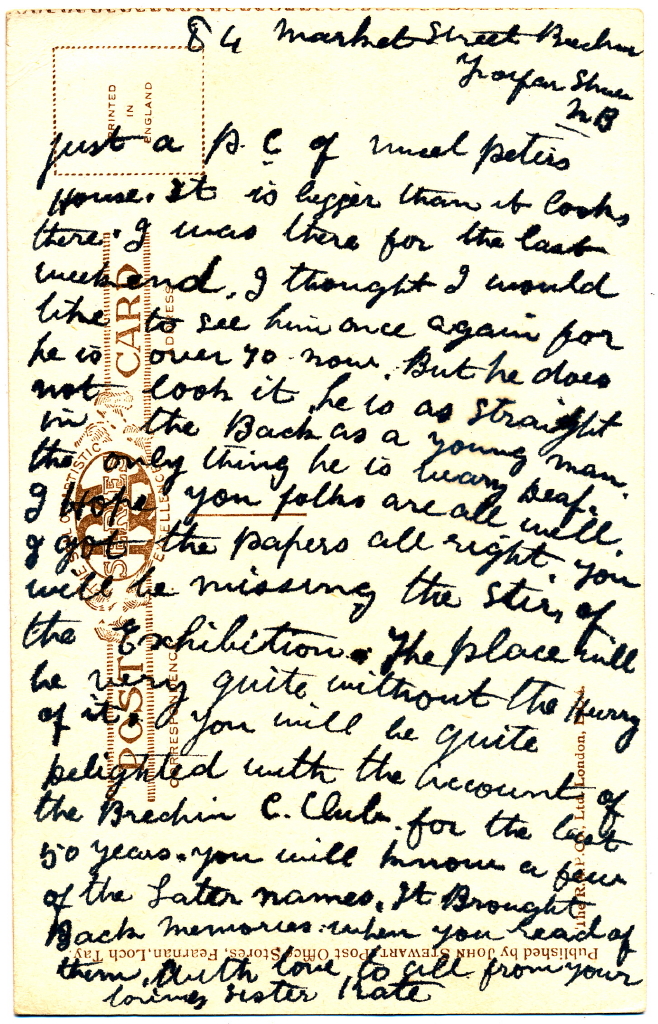 84 Market Street Brechin
Forfar Shire
N B
just a p. C of uncel peters
House. It is bigger than it looks
there. I was there for the last
weekend. I thought I would
like to see him once again for
he is over 70 now. But he does
not look it he is as straight
in the Back as a young man.
the only thing he is Deaf.
I Hope you folks are all well.
I got the papers all right. You
will be missing the Stir, of
the Exhibition. The place will
be very quite without the Hurry
of it. You will be quite
Delighted with the account of
the Brechin C. Club. for the last
50 years. you will know a few
of the Later names. It Brought
Back Memories when you read of
them. With love to all from your
loving Sister Kate
PRINTED
IN
ENGLAND
POST CARD
CORRESPONDENCE
ADDRESS
SERIES
The R.A.P. Co. Ltd London,
Published by JOHN STEWART, Post Office Stores, Fearnan, Loch Tay